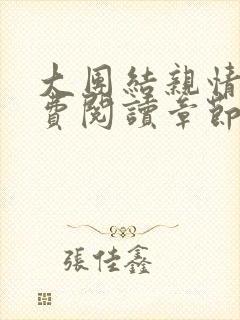 大團結親情
費閱讀章節
張佳鑫